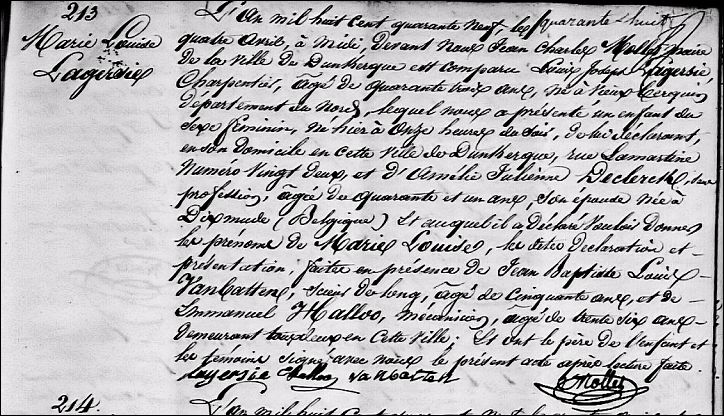 213
Marie Louise
Lagersie
L'An mil huit cent quarante neuf, les Quarante huit
quatre Avril, à Midi, devant Nous Jean Charles Mollet, maire
de la Ville de Dunkerque est comparu Louis Joseph Lagersie,
Charpentier, âgé de quarante trois ans, né à Vieux Berquin
département du Nord, lequel nous a présenté un enfant du
Sexe féminin, né hier à Onze heures du Soir, de lui déclarant,
en son domicile en cette Ville de Dunkerque, rue Lamartine
Numéro Vingt deux, et d'Amélie Julienne Declerck, sans
profession, âgée de quarante et un ans, son épouse née à
Dixmude (Belgique) Et auquel il a déclaré Vouloir donner
les prénoms de Marie Louise, les dites déclaration et
présentation, faites en présence de Jean Baptiste Louis
VanBatten, Scieur de long, âgé de Cinquante ans, et de
Emmanuel Halloo, Mécanicien, âgé de trente six ans
demeurant tous deux en Cette Ville; Et ont le père de l'enfant et
les témoins Signé avec Nous le présent acte après lecture faite.
Lagersie Halloo VanBatten Mollet
214
L'An mil huit Cent